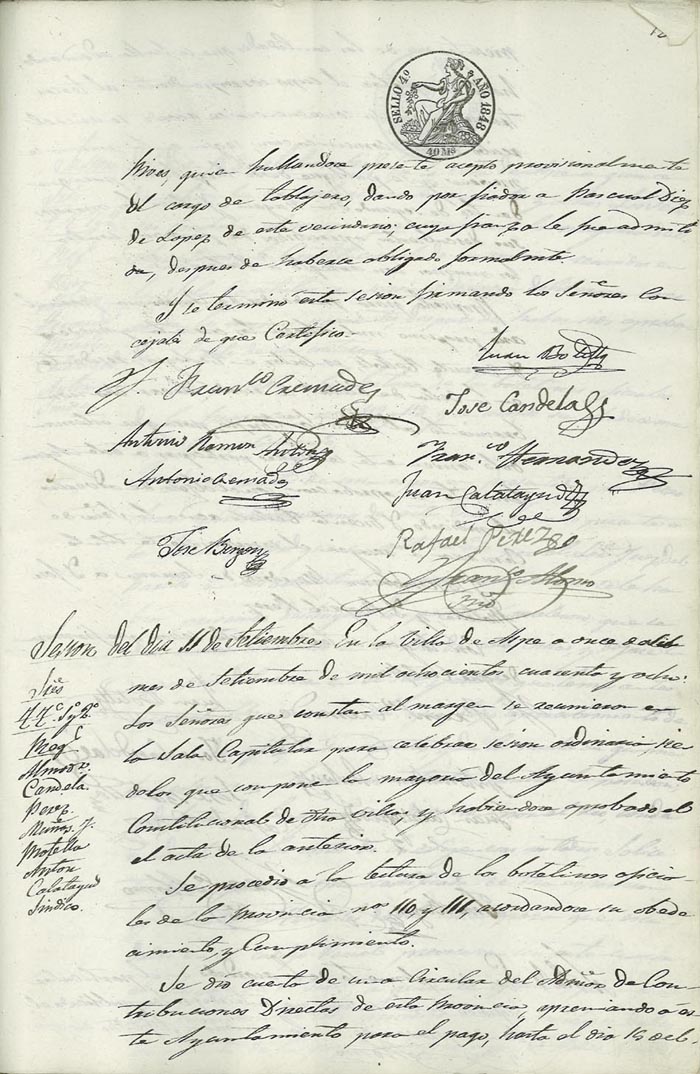 12
SELLO 4º AÑO 1848
40 Ms
Mires, quien hallandose presente acepto provisionalmente
el cargo de tablajero, dando por fiador a Pascual Diez
de Lopez de este vecindario; cuya fianza le fue admiti
da, despues de haberse obligado formalmente.
Y se termino esta sesion firmando los Señores Con
cejales de que Certifico.
Juan Botella
F. Franco Cremades
Jose Candela
Antonio Ramon Anton
Franco Hernandez
Antonio Cremades
Juan Calatayud
Rafael Perez
Jose
Franco Alonso
Sesion del dia 11 de Setiembre
En la Villa de Aspe a once de
mes de Setiembre de mil ochocientos cuarenta y ocho:
Los Señores que constan al margen se reunieron en
la Sala Capitular para celebrar sesion ordinaria, sien
do los que componen la mayoria del Ayuntamiento
Constitucional de dha villa, y habiendose aprobado el
el acta de la anterior.
Sres
Almodr
Candela.
Perez.
Muñoz. J.
Motella
Anton
Calatayud
Sindico.
Se procedio á la lectura de los boletines oficia
les de la Provincia nos 110 y 111, acordandose su obede
cimiento, y Cumplimiento.
Se dio cuenta de una Circular del Admor de Con
tribuciones Directas de esta Provincia, apremiando á es
te Ayuntamiento para el pago, hasta el dia 15 del